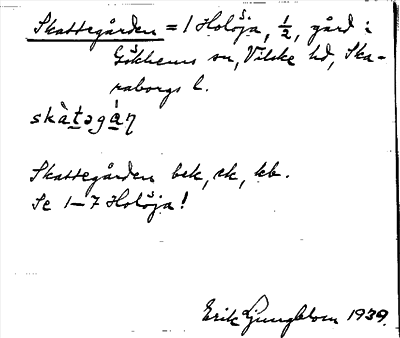 Skattegården = 1 Holöja, 1/2, gård i
Gökhems sn, Vilske hd, Ska-
raborgs l.
skàt̲əgá̲ṇ
Skattegården bek, ek, kb.
Se 1–7 Holöja!
Erik Ljungblom 1939.